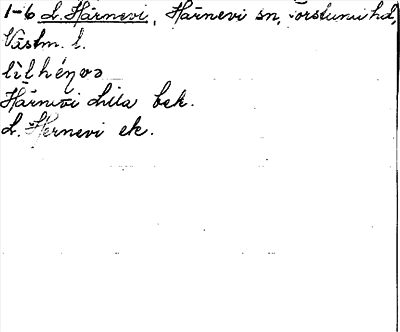 1-6 L. Härnevi, Härnevi sn, Torstuna hd,
Västm. l.
lìlhéŋvə
Härnevi Lilla bek.
L. Hernevi ek.